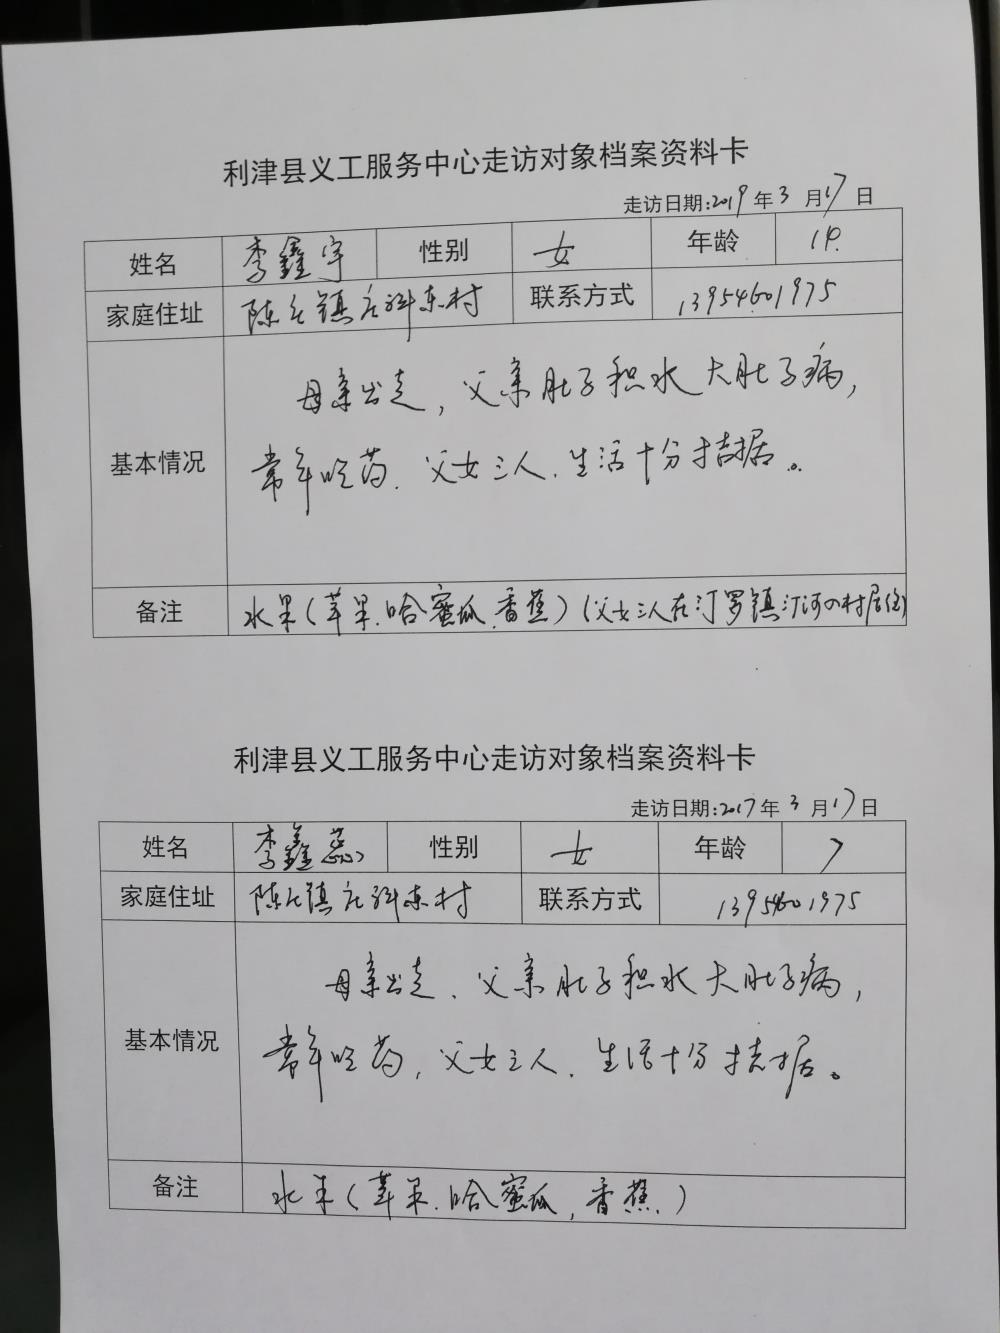 利津县义工服务中心走访对象档案资料卡
走访日期:2019年3月17日
姓名 李鑫宇 性别 女 年龄 14.
家庭住址 陈庄镇庄科东村 联系方式 13954601975
母亲出走，父亲肚子积水大肚子病，
基本情况 常年吃药.父女三人.生活十分拮据。
备注 水果(苹果.哈蜜瓜.香蕉)(父女三人在汀罗镇汀河四村居住)
利津县义工服务中心走访对象档案资料卡
走访日期:2017年3月17日
姓名 李鑫蕊 性别 女 年龄 7
家庭住址 陈庄镇庄科东村 联系方式 13954601975
母亲出走.父亲肚子积水大肚子病，
基本情况 常年吃药，父女三人.生活十分拮据。
备注 水果(苹果.哈蜜瓜,香蕉.)